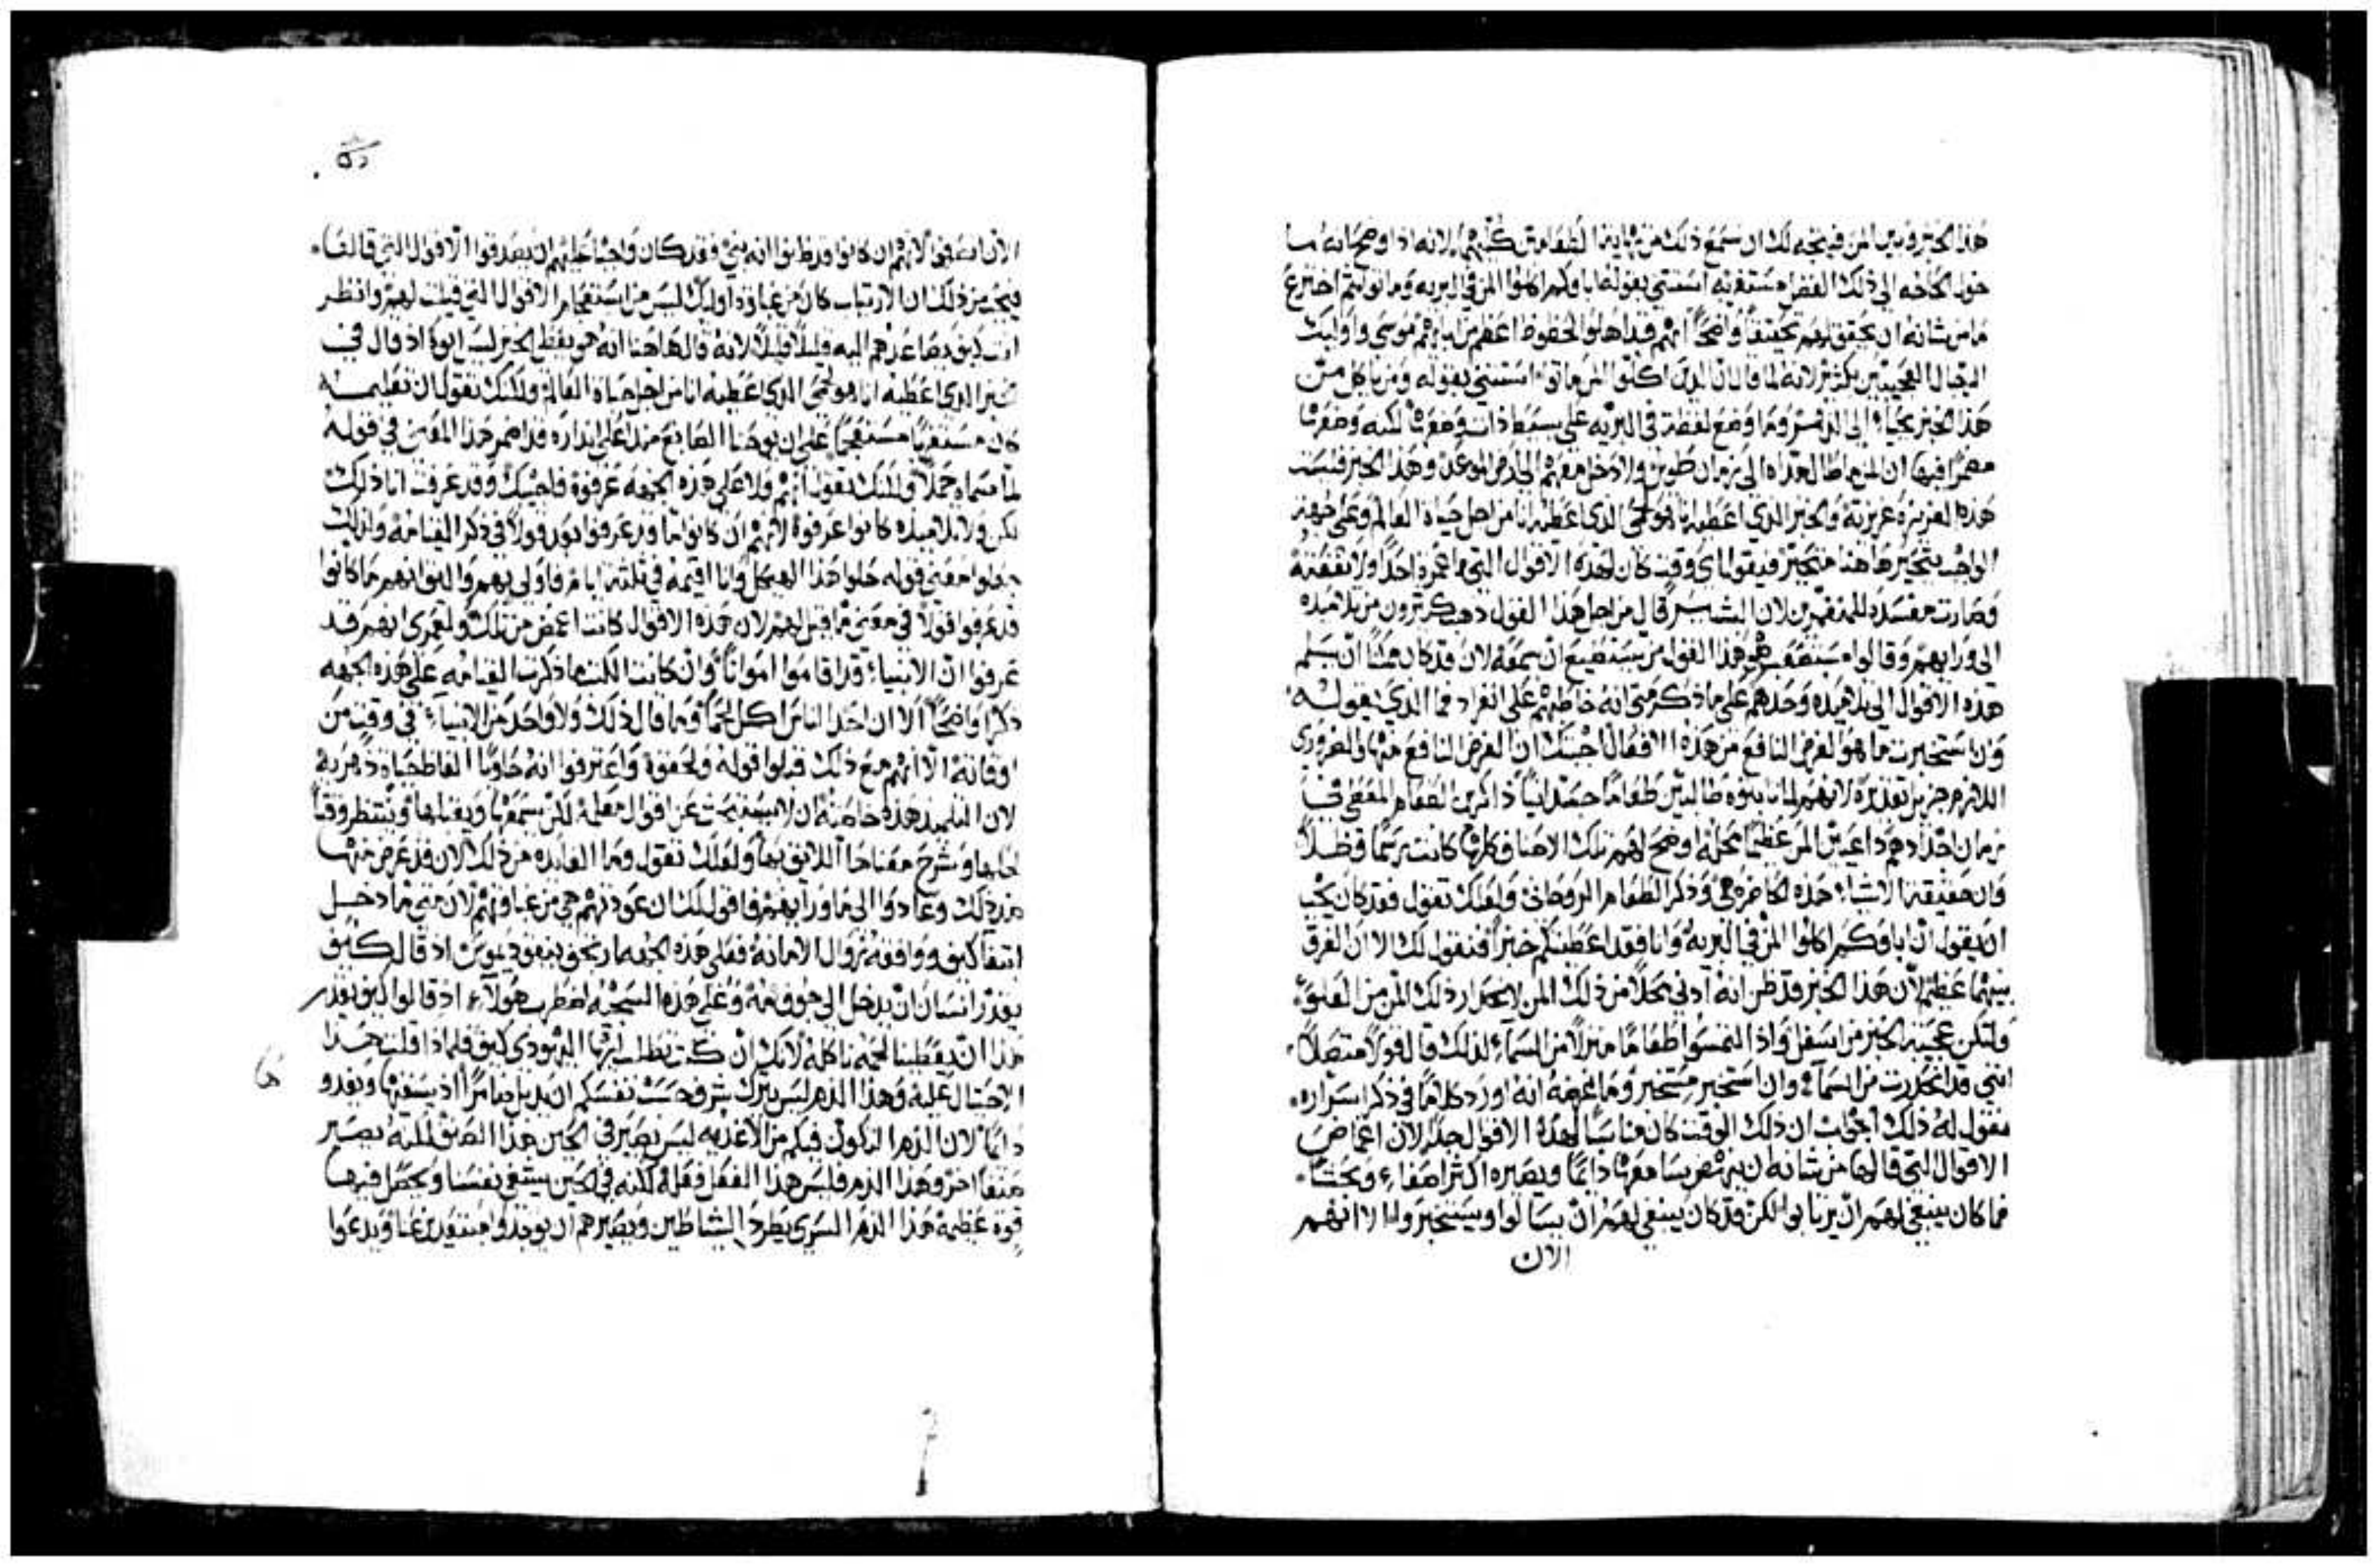 هذا الخبز وبين المن فيتجه لك ان تسمع ذلك من نهاية الطعامين كليهما لانه اذ اوضح انه ما
حول الحاجه الى ذلك الفضل مستغربه استثنى بقوله اباوكم اكلوا المن في البريه وماتوا ثم اخترع
ما من شانه ان يحقق لهم تحقيقاً واضحاً انهم قد اهلوا لحظوظ اعظم من ابايهم موسى واوليك
الرجال العجيبين بكثير لانه لما قال ان الذين اكلوا المن ماتوا استثنى بقوله ومن ياكل من
هذا الخبز يحيا الى الدهر وما وضع لفظة في البريه على بسيط ذات وضعها لكنه وضعها
مضمراً فيها ان المن ما طال مداه الى زمان طويل ولا دخل معهم الى ارض الموعد وهذا الخبز فليست
هذه الغريزه غريزته والخبز الذي اعطيه انا هو لحمي الذي اعطيه انا من اجل حياة العالم وعلى جهة
الواجب يتحير هاهنا متحير فيقول اي وقت كان لهذه الاقوال التي ما عمرت احداً ولا نفعته
وصارت مفسده للمنتفعين لان البشير قال من اجل هذا القول ذهب كثيرون من تلاميذه
الى ورايهم وقالوا مستصعب هو هذا القول من يستطيع ان يسمعه لان قد كان ممكناً ان يسلم
هذه الاقوال الى تلاميذه وحدهم على ما ذكر متى انه خاطبهم على انفراد فما الذي نقوله
وان استخبرت ما هو الغرض النافع من هذه الافعال اجبتك ان الغرض النافع منها والضروري
اللازم جزيل تقديره لانهم لما ثابتوه طالبين طعاماً جسدانياً ذاكرين الطعام المعطى في
زمان اجدادهم داعيين المن عظيماً محله اوضح لهم تلك الاصناف كلها كانت رسماً وظلاً
وان حقيقة الاشياء هذه الحاضره هي وذكر الطعام الروحاني ولعلك تقول فقد كان يجب
ان يقول ان اباوكم اكلوا المن في البريه وانا فقد اعطيتكم خبزاً فنقول لك الا ان الفرق
بينهما عظيم لان هذا الخبز قد ظن انه ادنى محلاً من ذلك المن لانحدار ذلك المن من العلو
ولتكن عجيبة الخبز من اسفل واذ التمسوا طعاماً منزلاً من السماء لذلك قال قولاً متصلاً
انني قد انحدرت من السماء وان استخبر مستخبر وما غرضه انه اورد كلاماً في ذكر اسراره
نقول له ذلك اجوبت ان ذلك الوقت كان مناسباً لهذه الاقوال جداً لان اغماض
الاقوال التي قالها من شانه ان ينهض سامعها دائماً ويصيره اكثر اصغاء وبحثاً
فما كان ينبغي لهم ان يرتابوا لكن قد كان ينبغي لهم ان يسالوا ويستخبروا الا انهم
الان
الان انصرفوا لانهم ان كانوا قد ظنوا انه نبي فقد كان واجباً عليهم ان يصدقوا الاقوال التي قالها
فيتجه من ذلك ان الارتياب كان من غباوة اوليك ليس من استعجام الاقوال التي قيلت لهم وانظر
انت كيف دعاعزهم اليه قليلاً قليلاً لانه قال هاهنا انه هو يعطي الخبز ليس ابوه اذ قال في
الخبز الذي اعطيه انا هو لحمي الذي اعطيه انا من اجل حياة العالم ولعلك تقول ان تعليمه
كان مستغرباً مستعجماً على ان يوحنا الصابغ منذ اعلى انذاره قد اضمر هذا المعنى في قوله
لما سماه حملاً ولعلك تقول انهم ولا على هذه الجهه عرفوه فاجيبك وقد عرفت انا ذلك
لكن ولا تلاميذه كانوا عرفوه لانهم ان كانوا ما قد عرفوا بعد قولاً في ذكر القيامه ولذلك
جهلوا معنى قوله حلوا هذا الهيكل وانا اقيمه في ثلثة ايام فاولى بهم واليق انهم ما كانوا
قد عرفوا قولاً في معنى ما قيل لهم لان هذه الاقوال كانت اغمض من تلك ولعمري انهم قد
عرفوا ان الانبياء قد اقاموا امواتاً وان كانت الكتب ما ذكرت القيامه على هذه الجهه
ذكراً واضحاً الا ان احد الناس اكل لحماً وما قال ذلك ولا واحد من الانبياء في وقت من
اوقاته الا انهم مع ذلك قبلوا قوله ولحقوه واعترفوا انه حاوياً الفاظ حياة دهريه
لان التلميذ هذه خاصته ان لا يستبحث عن اقوال معلمه لكن يسمعها ويقبلها وينتظر وقتاً
لحلها وشرح معناها اللايق بها ولعلك تقول وما الفايده من ذلك الان قد عرض منها
ضد ذلك وعادوا الى ما ورايهم فاقول لك ان عودتهم هي من غباوتهم لان متى ما دخل
ابتغا كيف ووافقه زوال الامانه فعلى هذه الجهه ارتجف نيقوديموس اذ قال كيف
يقدر انسان ان يدخل الى جوف امه وعلى هذه السجيه اضطرب هولاء اذ قالوا كيف يقدر
هذا ان يعطينا لحمه ناكله لانك ان كنت تطلب ايها اليهودي كيف فلماذا قلت هذا
الاحتال عليه وهذا الدم ليس يترك شرف حسب نفسكم ان يذبل ضامراً اذ يسقيها ويغذو
دائماً لان الدم المتكون فيكم من الاغذيه ليس يصير في الحين هذا الصنف لكنه يصير
صنفاً اخر وهذا الدم فليس هذا الفعل فعله لكنه في الحين يسقي نفسنا ويجعل فيها
قوة عظيمة هذا الدم السري يطرد الشياطين ويصيرهم ان يوجدوا مبتعدين عنا ويدعوا